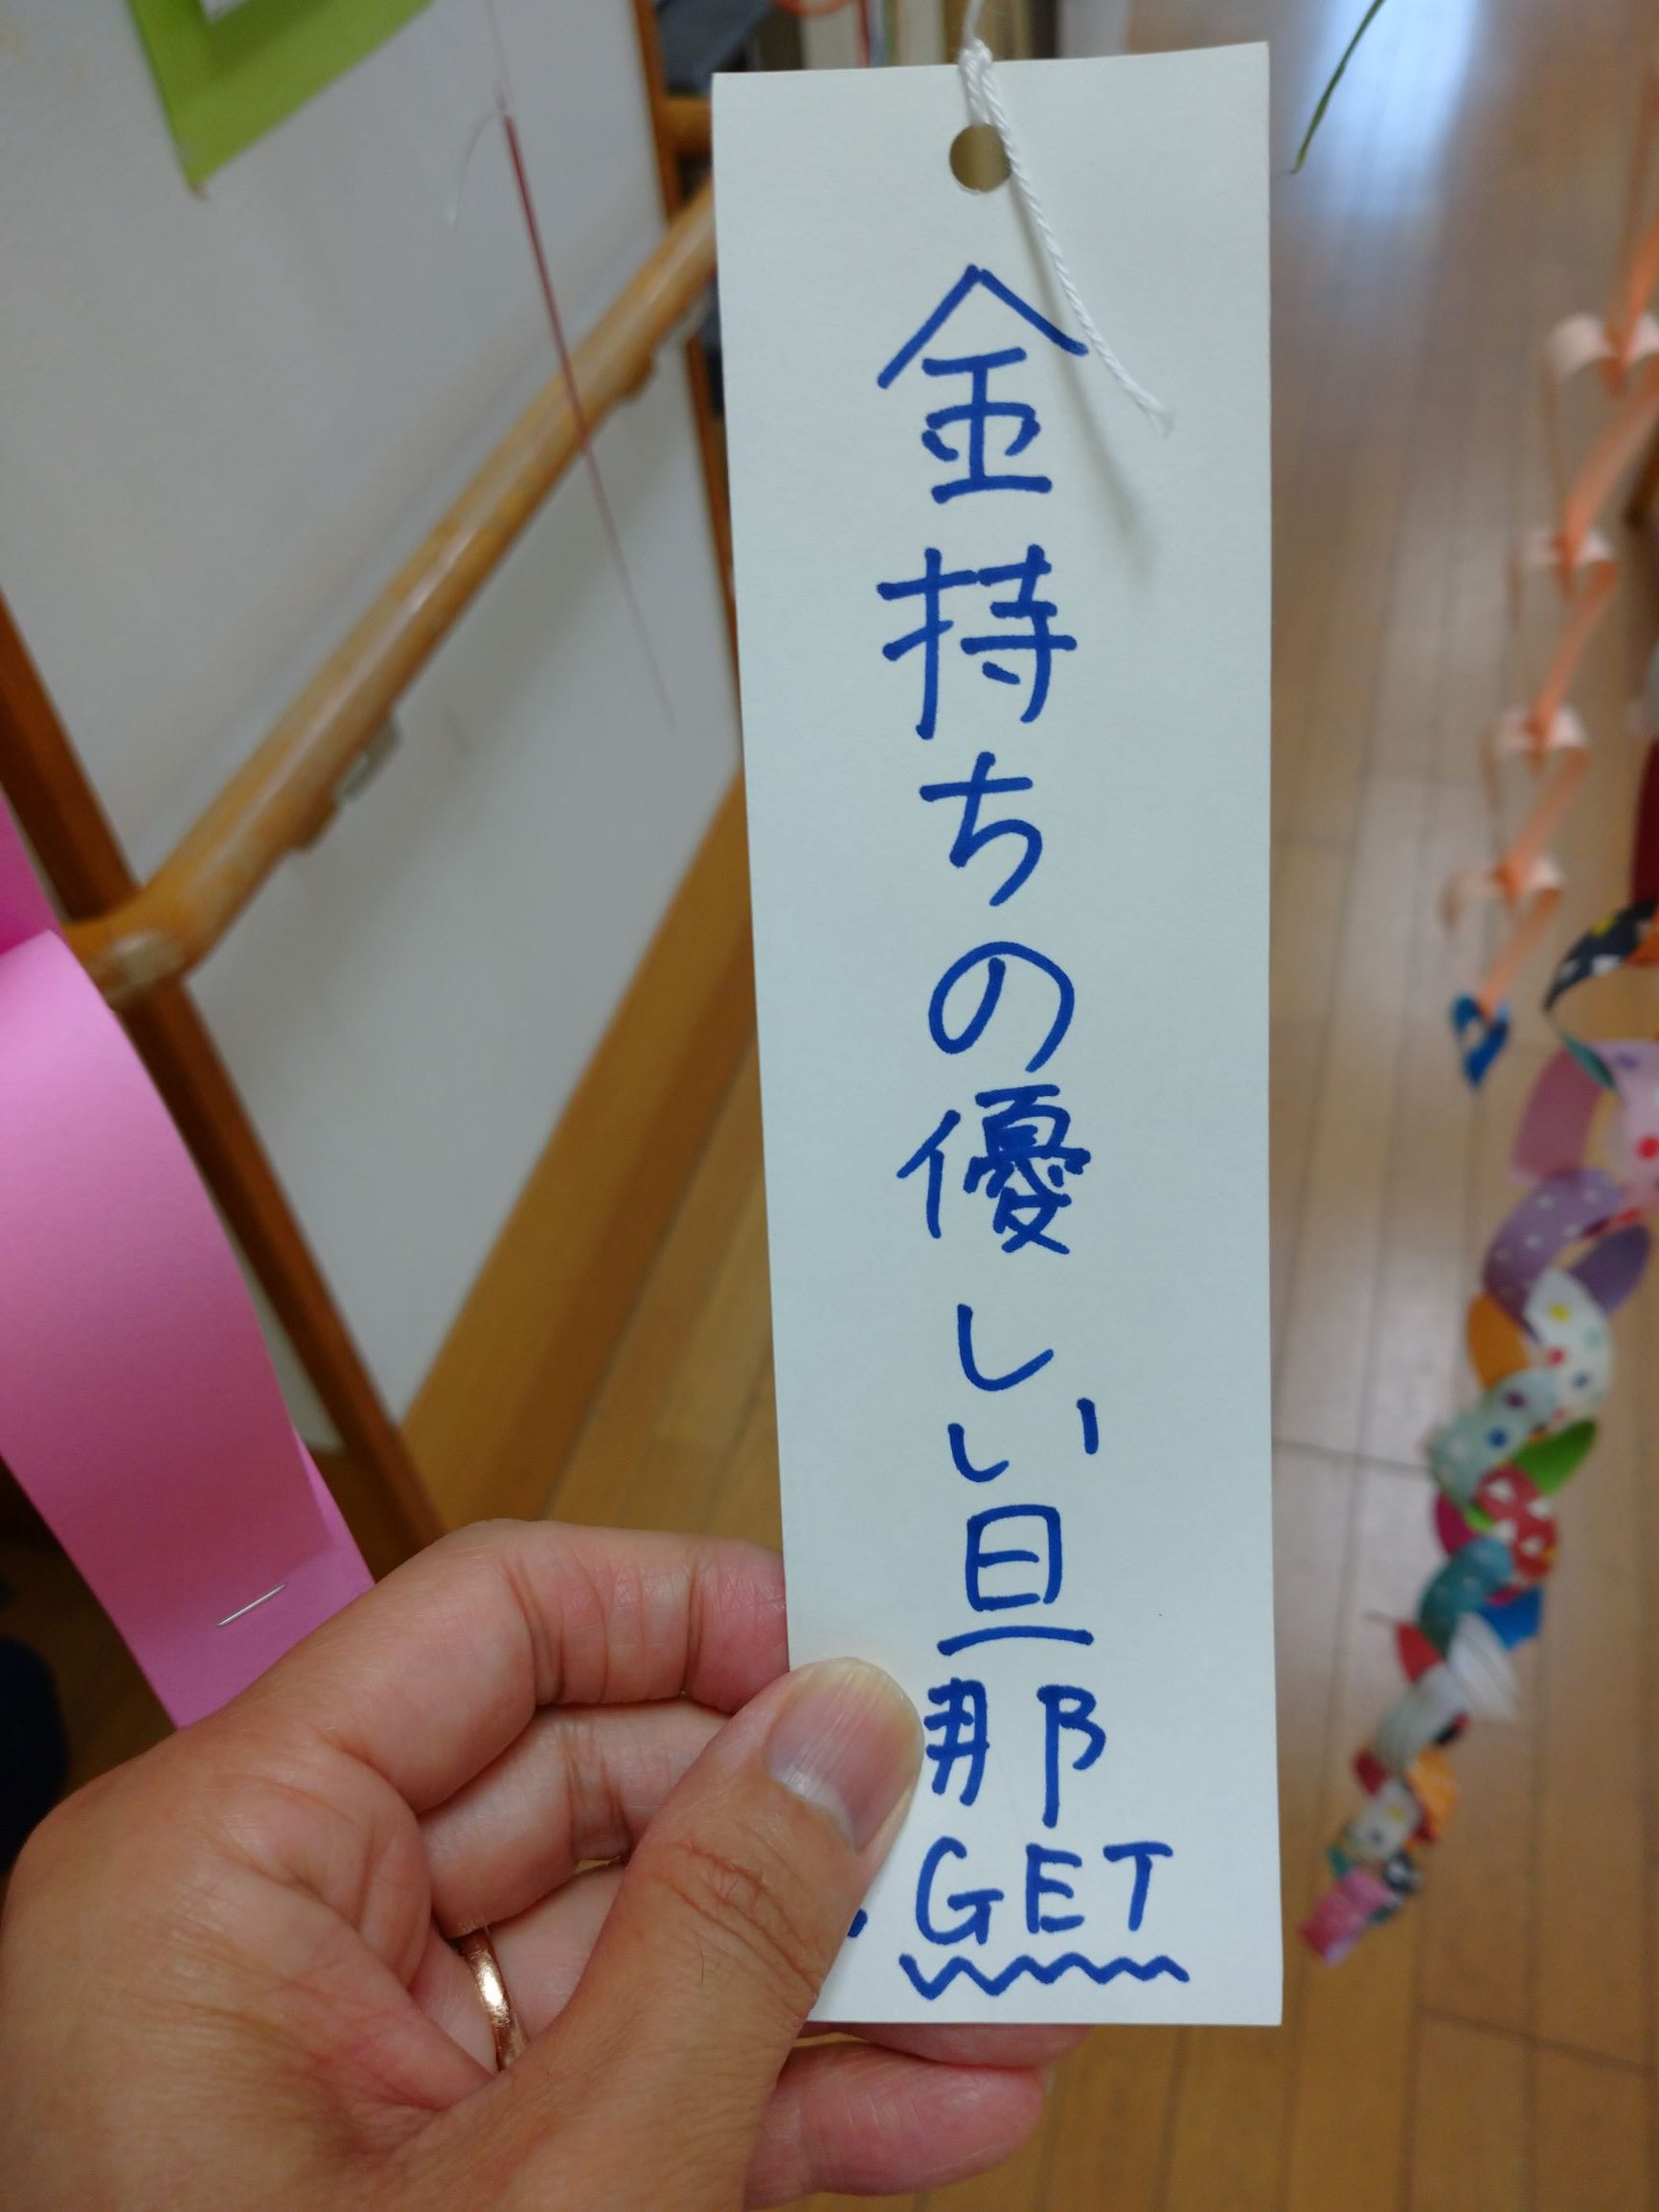 金持ちの優しい旦那
GET